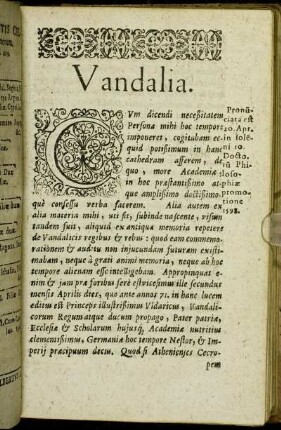 Vandalia.
CVm dicendi necessitatem
Persona mihi hoc tempore
imponeret, cogitabam ec-
quid potissimum in hanc
cathedram afferem, de-
quo, more Academiæ
in hoc præstantissimo at-
que amplissimo doctissimo-
que consessu verba facerem. Alia autem ex
alia materia mihi, uti fit, subinde nascente, visum
tandem fuit, aliquid ex antiqua memoria repetere
de Vandalicis regibus & rebus: quod eam commemo-
rationem & auditu non injucundam futuram existi-
mabam, neque à grati animi memoria, neque ab hoc
tempore alienam esse intellegebam. Appropinquat e-
nim & jam præ foribus ferè est vicesimus ille secundus
mensis Aprilis dies, quo ante annos 71. in hanc lucem
editus est Princeps illustrissimus Vldaricus, Vandali-
corum Regumatque ducum propago, Pater patriæ,
Ecclesiæ & Scholarum hujusq́; Academiæ nutritius
clementissimus, Germaniæ hoc tempore Nestor, & Im-
perij præcipuum decus. Quod si Athenienses Cecro-
pem
Pronũ-
ciata est
20. Apr.
in sole-
ni 10.
Docto.
rũ Phi-
loso-
phiæ
promo-
tione
1598.